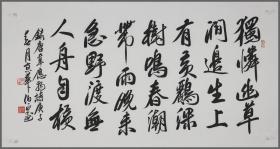 獨憐幽草
澗邊生上
有黃鸝深
樹鳴春潮
帶雨晚來
急野渡無
人舟自橫
錄唐韋應物詩庚子